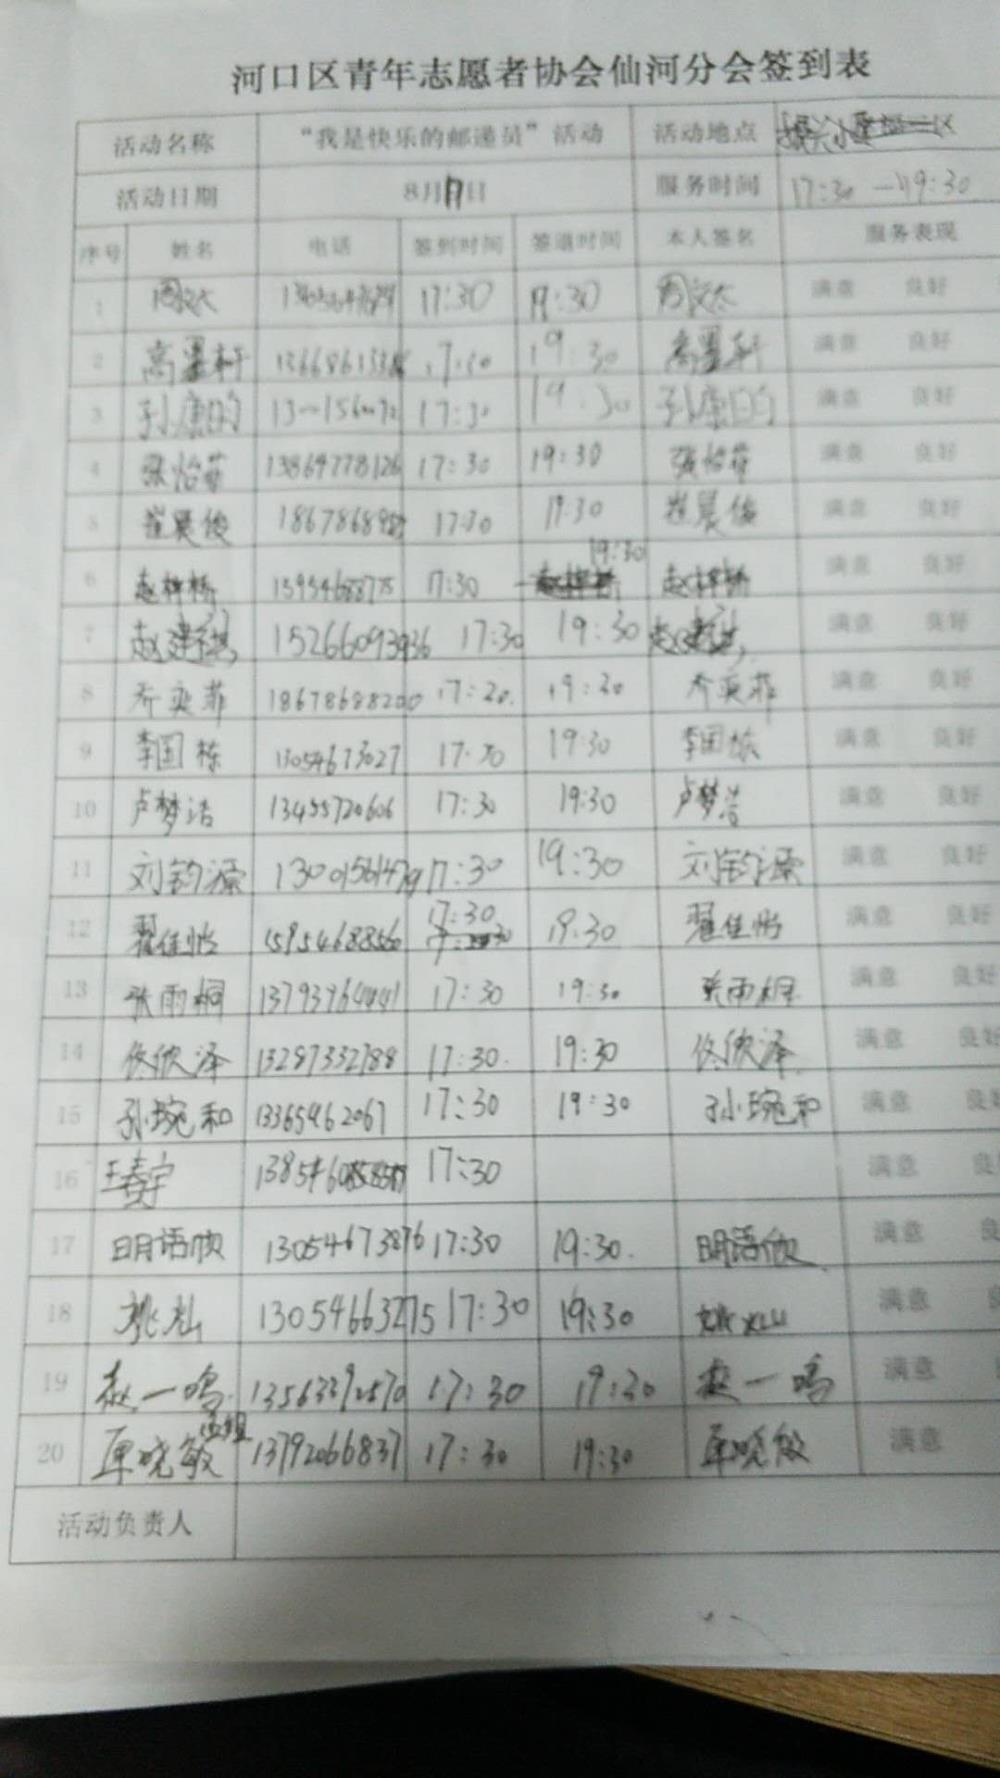 河口区青年志愿者协会仙河分会签到表
活动名称 “我是快乐的邮递员”活动 活动地点 振兴小区
活动日期 8月17日 服务时间 17:30—19:30
序号 姓名 电话 签到时间 签退时间 本人签名 服务表现
1 周文太 17:30 19:30 周文太 满意 良好
2 高墨轩 19:30 高墨轩 满意 良好
3 孙康昀 17:30 19:30 孙康昀 满意 良好
4 张怡菲 13864778126 17:30 19:30 张怡菲 满意 良好
5 崔晨俊 17:30 19:30 崔晨俊 满意 良好
6 赵梓桥 17:30 19:30 赵梓桥 满意 良好
7 17:30 19:30 满意 良好
8 乔奕菲 18678688200 17:30 19:30 乔奕菲 满意 良好
9 李国栋 13054673027 17:30 19:30 李国栋 满意 良好
10 卢梦洁 13455720606 17:30 19:30 卢梦洁 满意 良好
11 刘钧源 17:30 19:30 刘钧源 满意 良好
12 翟佳怡 15954688560 17:30 19:30 翟佳怡 满意 良好
13 张雨桐 13793964441 17:30 19:30 张雨桐 满意 良好
14 佟欣泽 13287332788 17:30 19:30 佟欣泽 满意 良好
15 孙琬和 13365462067 17:30 19:30 孙琬和 满意 良好
16 17:30 满意 良
17 明语欣 13054673876 17:30 19:30 明语欣 满意 良
18 姚灿 13054663275 17:30 19:30 满意 良
19 赵一鸣 17:30 19:30 赵一鸣 满意
20 单晓敏 13792066837 17:30 19:30 单晓敏 满意
活动负责人